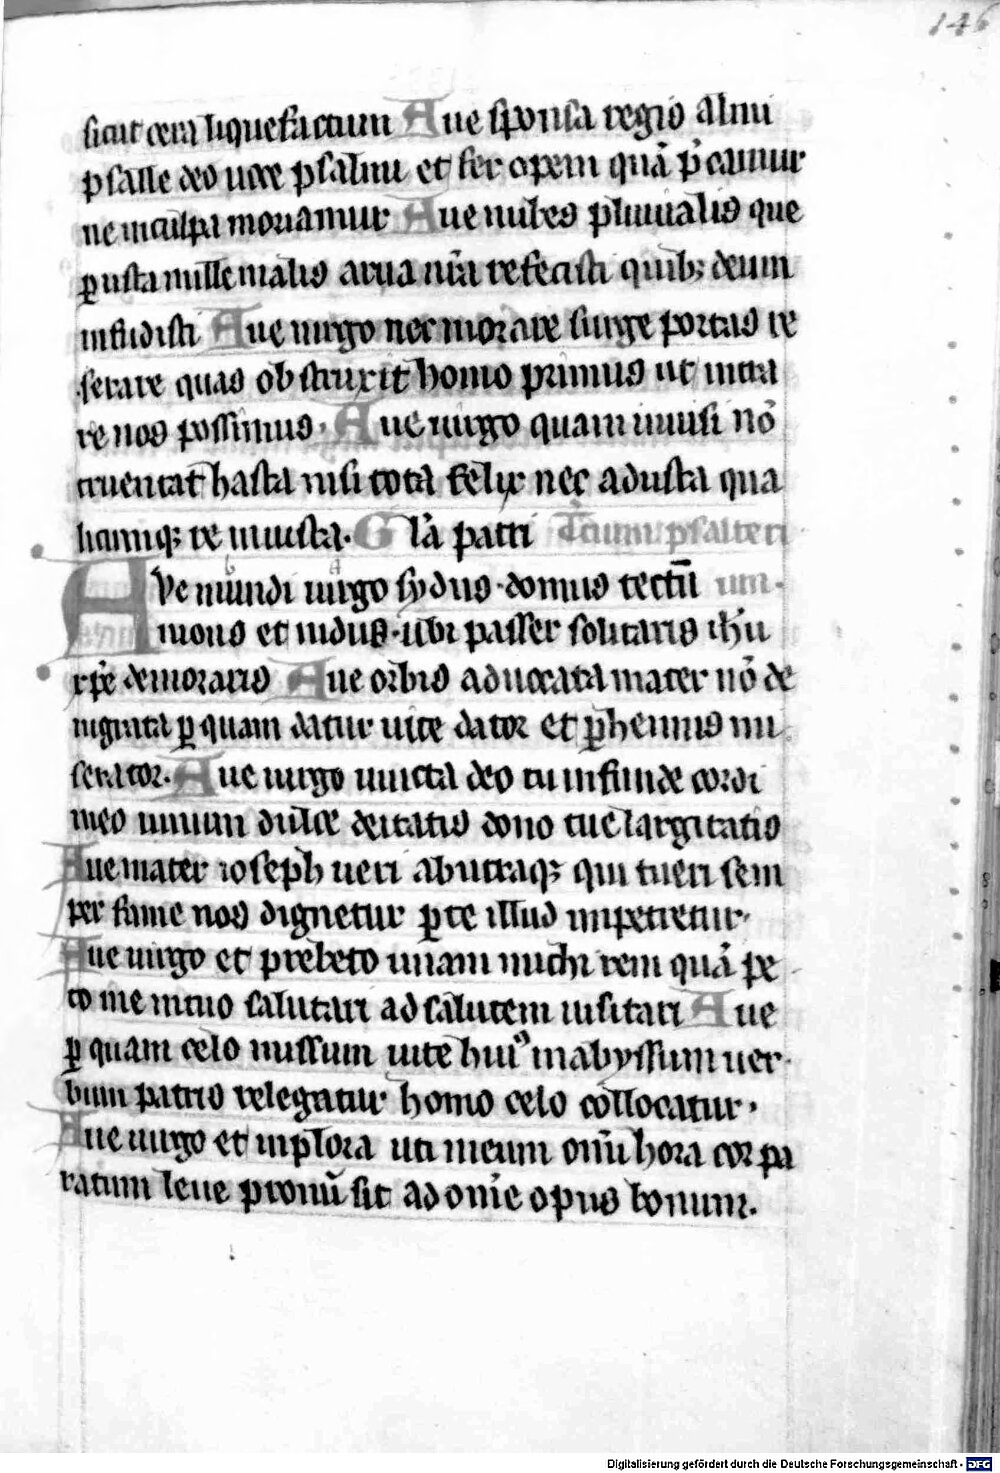 146
sicut cera liquefactum Aue sponsa regis almi
psalle deo uoce psalmi et fer opem quā p̄camur
ne in culpa moriamur Aue nubes pluuialis que
ꝑusta mille malis arua nr̄a refecisti quibꝫ deum
infudisti Aue uirgo nec morare surge portas re
serare quas obstruxit homo primus ut intra
re nos possimus. Aue uirgo quam inuisi nō
cruentat hasta nisi tota felix nec adusta qua
hamqꝫ re iniusta. Gl̄a patri Tcium psalteri
AVe mundi uirgo sydus domus tectū um.
mons et nidus ubi passer solitaris ih̄u
xp̄e demoraris Aue orbis aduocata mater nō de
nigrata ꝑ quam datur uite dator et ꝑhennis mi
serator. Aue uirgo uincta deo tu infunde cordi
meo unum dulce deitatis dono tue largitatis
Aue mater ioseph ueri ab utraqꝫ qui tueri sem
per fame nos dignetur ꝑ te illud impetretur.
Aue uirgo et prebeto unam michi rem quā pe
to me intuo salutari ad salutem uisitari Aue
ꝑ quam celo missum uite huiꝰ in abyssum uer
bum patris relegatur homo celo collocatur.
Aue uirgo et inplora uti meum om̄i hora cor pa
ratum leue pronū sit ad om̄e opus bonum.
Digitalisierung gefördert durch die Deutsche Forschungsgemeinschaft - DFG